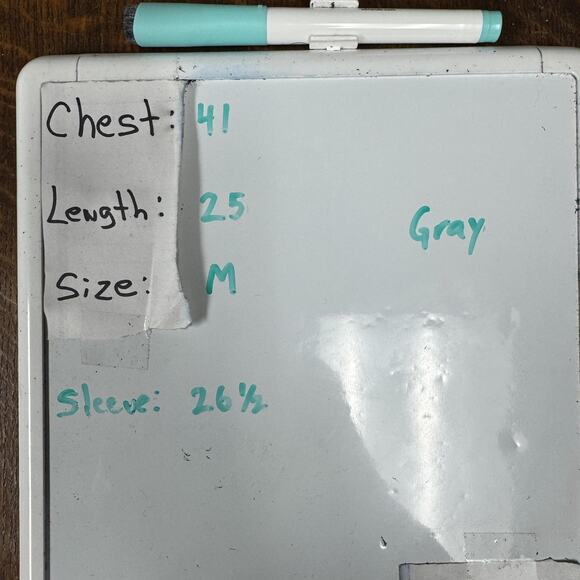 Chest: 41
Length: 25
Gray
Size: M
Sleeve: 26 1/2